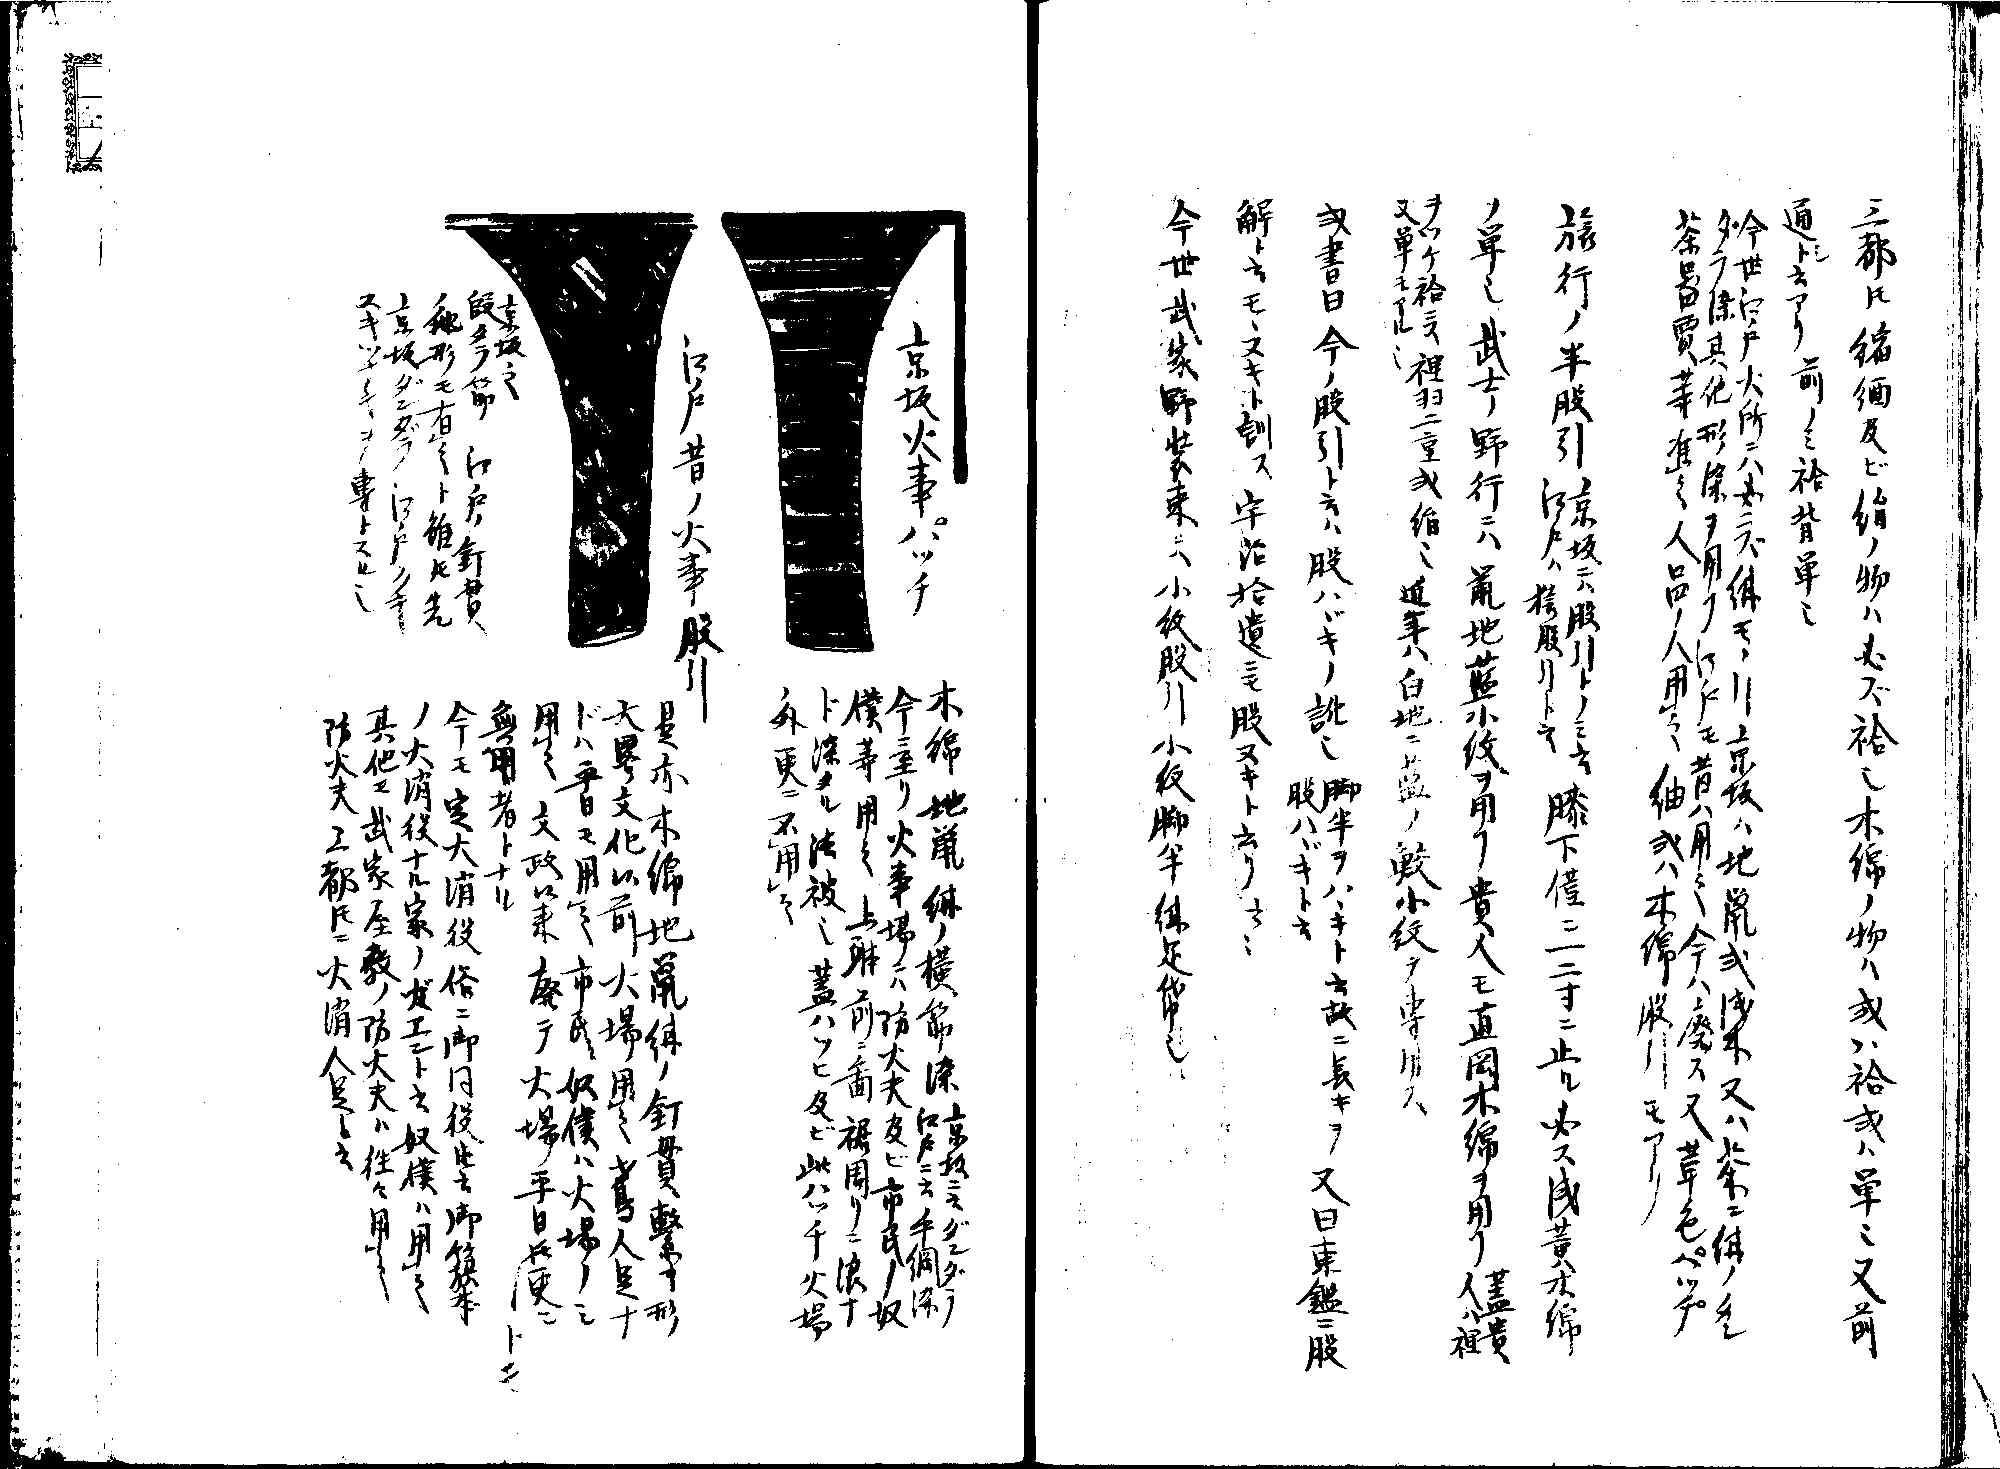 三都トモ縮緬及ビ絹ノ物ハ必ズ袷也木綿ノ物ハ或ハ袷或ハ単也又前
通シト云アリ前ノミ袷背単也
今世江戸火所ニハ必ズ紺モヽ引京坂ハ地鼠或浅木又ハ茶ニ紺ノ
ダラ染其他形染ヲ用フ江戸モ昔ハ用之今ハ廃ス又革色パッチ
茶器賈等准之人品ノ人用之紬或ハ木綿股引モアリ
旅行ノ半股引
京坂ニハ股引トノミ云
江戸ハ 股引ト云
膝下僅ニ一二寸ニ止ル必ス浅黄木綿
ノ単也武士ノ野行ニハ鼠地藍小紋ヲ用フ貴人モ直岡木綿ヲ用フ
蓋貴
人ハ裡
ヲツケ袷ニス裡羽二重或絹也
又単モアル也
近年ハ白地ニ藍ノ鮫小紋ヲ専用ス
或書曰今ノ股引ト云ハ股ハバキノ訛也
脚半ヲハヾキト云故ニ長キヲ
股ハバキト云
又曰東鑑ニ股
解ト云モヽヌキト訓ス宇治拾遺ニモ股ヌキト云リ云々
今世武家野装束ニハ小紋股引小紋脚半紺足袋也
京坂火事パッチ
木綿地鼠紺ノ横筋染
京坂ニ云ダンダラ
江戸ニ云手綱染
今ニ至リ火事場ニハ防火夫及ビ市民ノ奴
僕等用之上輩前ニ画裾周リニ浪ナ
ド染タル法被也蓋ハッピ及ビ此ハッチ火場
外更ニ不用之
江戸昔ノ火事股引
是亦木綿地鼠紺ノ釘貫繋ギ形
大畧文化以前火場用之鳶人足ナ
ドハ平日モ用之市民奴僕ハ火場ノミ
用之文政以来廃テ火場平日トモ更ニ
無用者トナル
今モ定火消役俗ニ御同役此云御籏本
ノ火消役ナル家ノガエント云奴僕ハ用之
其他モ武家屋敷ノ防火夫ハ往々用之
防火夫三都トモニ火消人足ト云
京坂之
段ダラ筋江戸ノ釘貫
形モ有之ト雖トモ先
京坂ダンダラ江戸クギ
ヌキツナギヲ専トスル也